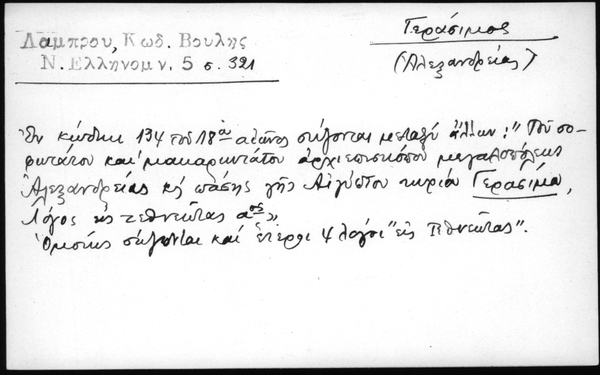 Λαμπρου, Κωδ. Βουλης
Ν. Ελληνομν. 5 σ. 321
Γεράσιμος
(Ἀλεξανδρείας)
Ἐν κώδικι 134 τοῦ 18ου αἰῶνος σώζονται μεταξὺ ἄλλων: "Τοῦ σο-
φωτάτου καὶ μακαριωτάτου ἀρχιεπισκόπου μεγαλοπόλεως
Ἀλεξανδρείας κ) πάσης γῆς Αἰγύπτου κυρίου Γερασίμου,
Λόγος εἰς τεθνεῶτας αος"
Ὁμοίως σώζονται καὶ ἕτεροι 4 λόγοι "εἰς Τεθνεῶτας".